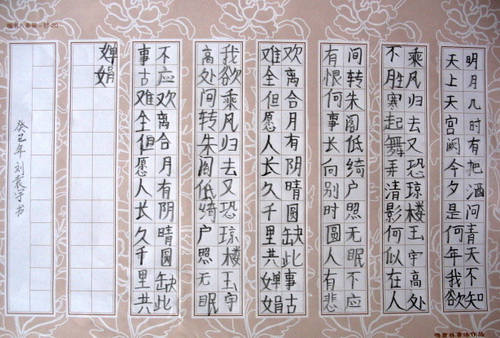 明月几时有把酒问青天不知
天上天宫阙今夕是何年我欲
乘凡归去又恐琼楼玉宇高处
不胜寒起舞弄清影何似在人
间转朱阁低绮户照无眠不应
有恨何事长向别时圆人有悲
欢离合月有阴晴圆缺此事古
难全但愿人长久千里共婵娟
我欲乘凡归去又恐琼楼玉宇
高处间转朱阁低绮户照无眠
不应欢离合月有阴晴圆缺此
事古难全但愿人长久千里共
婵娟
癸巳年刘袁宇书